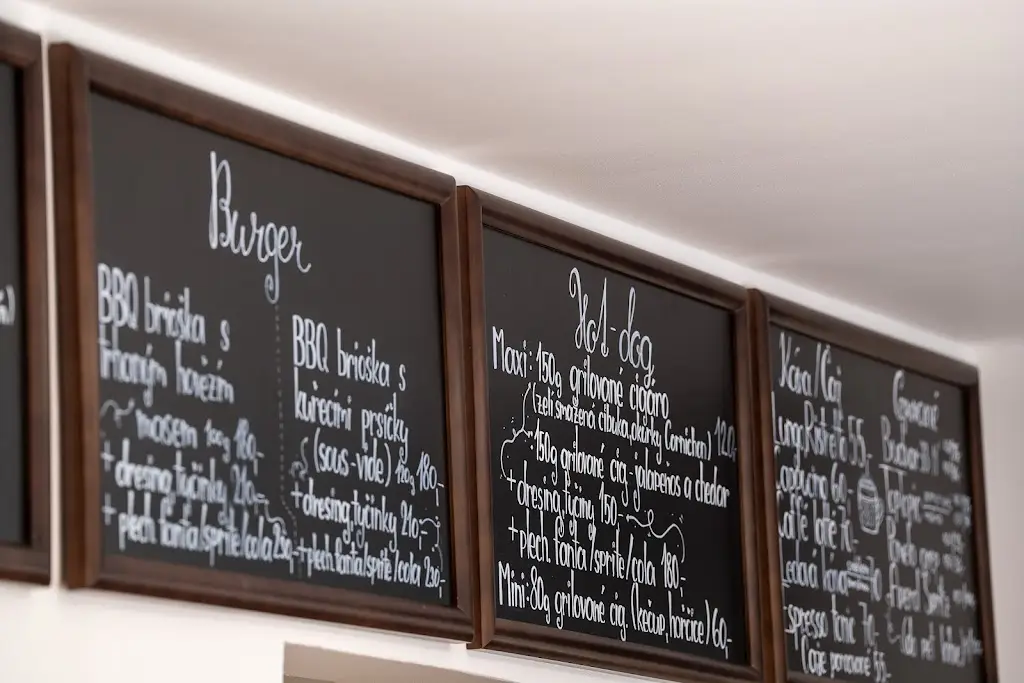 Burger
BBQ brioška s
trhaným hovězím
masem 100g 180,-
+ dresing, tyčinky 210,-
+ plech. fanta/sprite/cola 230,-
BBQ brioška s
kuřecími prsíčky
(sous-vide) 120g 180,-
+ dresing, tyčinky 210,-
+ plech. fanta/sprite/cola 230,-
Hot-dog
Maxi: 150g grilované cigáro
(zelí smažená cibulka, okurky Cornichon) 120,-
: 150g grilované cig. - jalapeňos a chedar
+ dresing, tyčiny 150,-
+ plech. fanta/sprite/cola 180,-
Mini: 80g grilované cig. (kečup, hořčice) 60,-
Káva/Čaj
Lungo, Ristreto 55,-
Capucino 60,-
Caffé late 70,-
Ledová káva 70
Espresso tonic 70,-
Čaje porcované 55,-
Aperol Spritz